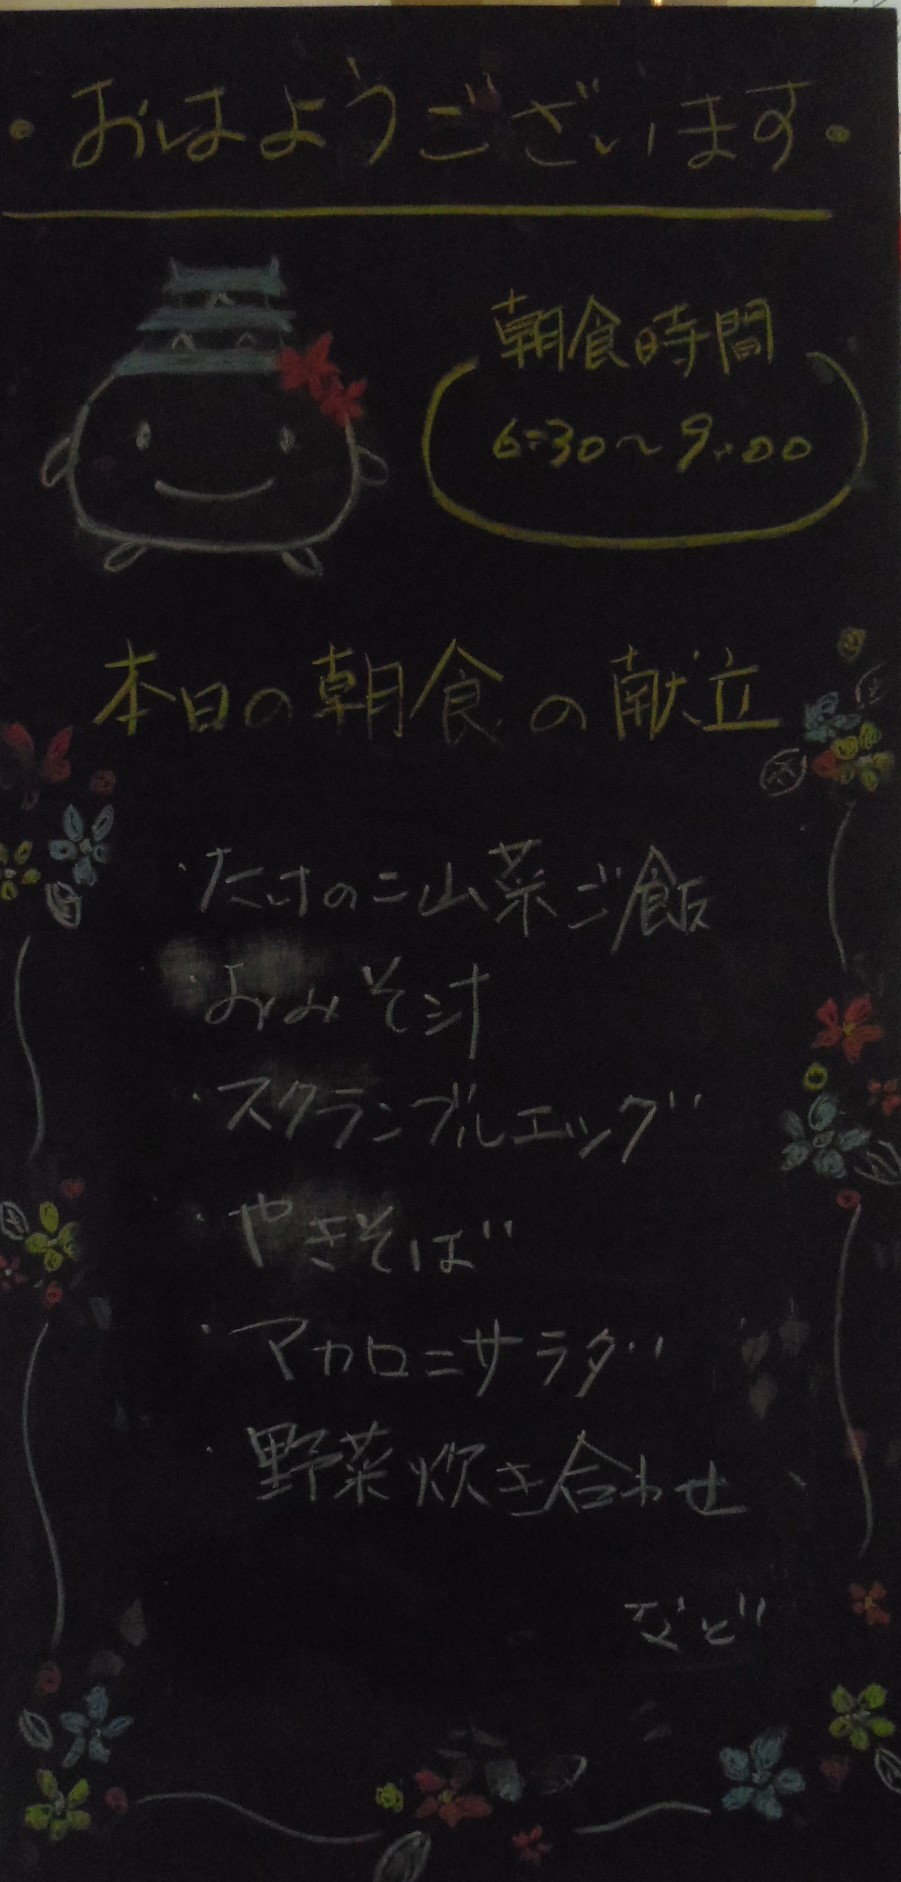 ・おはようございます・
朝食時間
6:30～9:00
本日の朝食の献立
・たけのこ山菜ご飯
・おみそ汁
・スクランブルエッグ
・やきそば
・マカロニサラダ
・野菜炊き合わせ
など